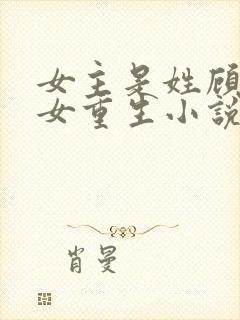 女主是姓顾
女重生小說
肖曼